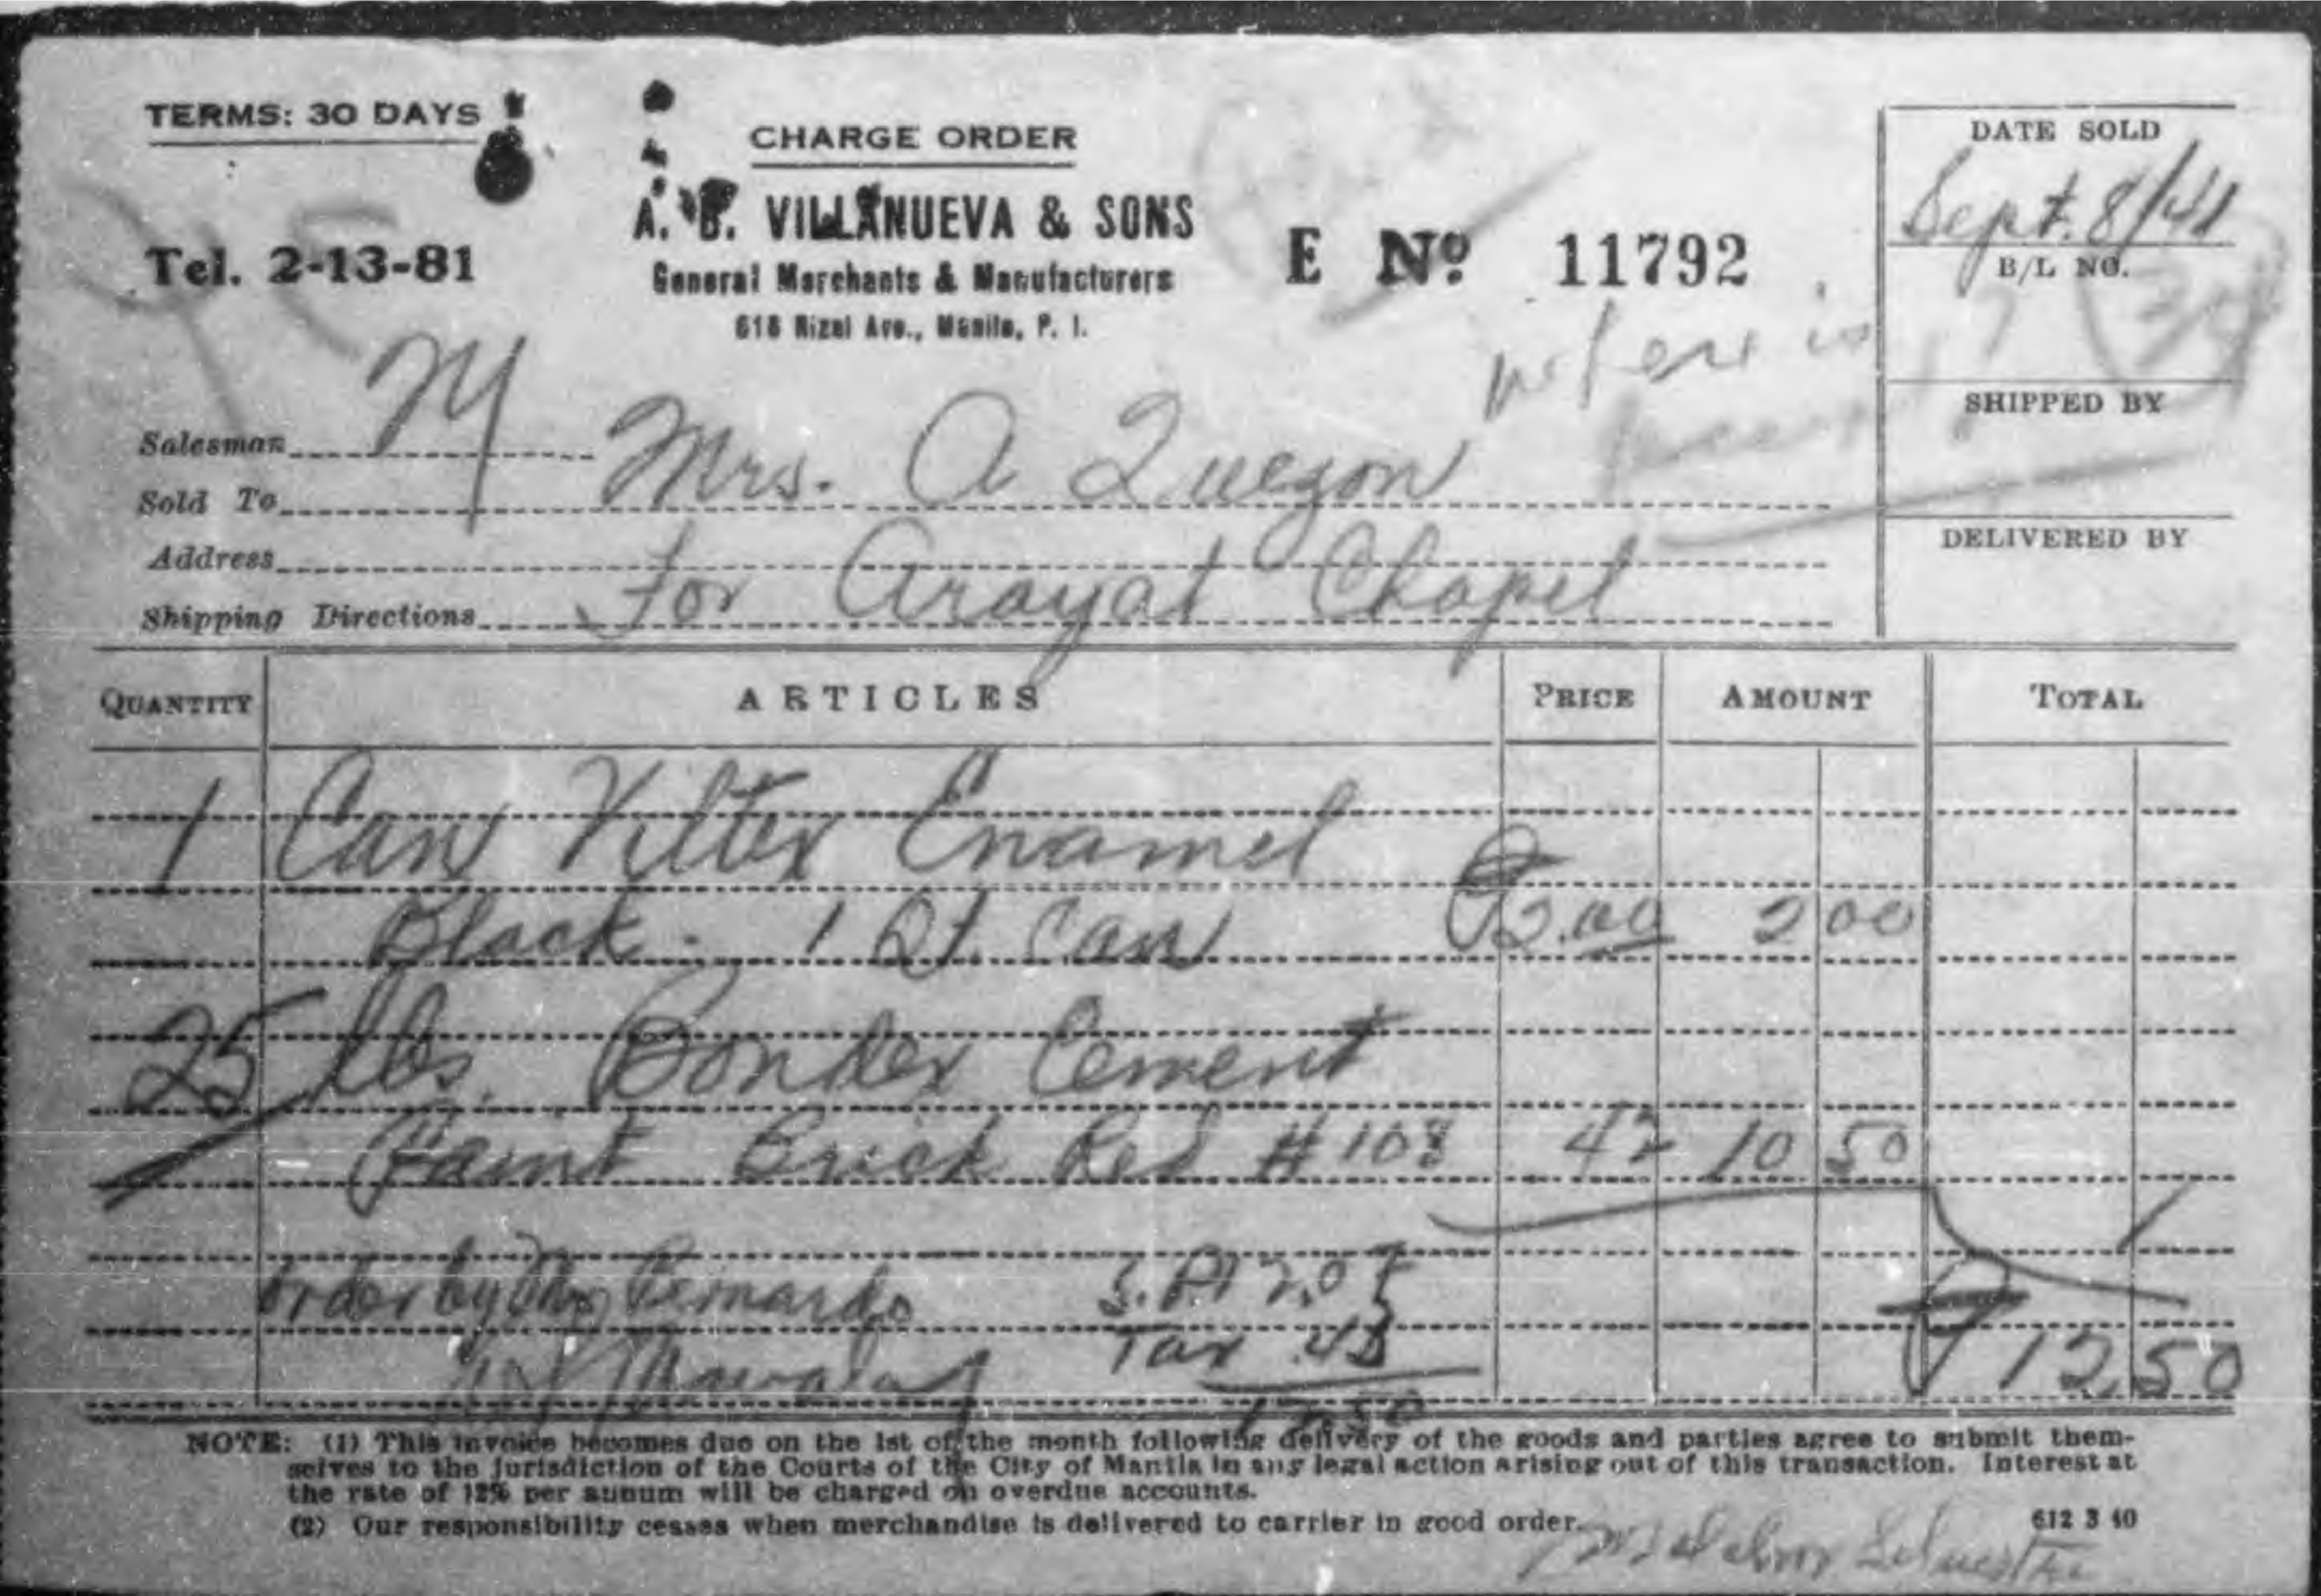 TERMS: 30 DAYS
CHARGE ORDER
A. B. VILLANUEVA & SONS
General Merchants & Manufacturers
618 Rizal Ave., Manila, P. I.
Tel. 2-13-81
E Nº 11792
DATE SOLD
Sept. 8/41
B/L NO.
SHIPPED BY
DELIVERED BY
where is
Salesman M
Sold To Mrs. A Quezon
Address
Shipping Directions For Arayat Chapel
QUANTITY ARTICLES PRICE AMOUNT TOTAL
1 Can Viltex Enamel
Black. 1 Qt. Can ₱2.00 2 00
25 lbs. Bondex Cement
Paint Brick Red #108 42 10 50
Order by Bernardo S.P. 12.07
Tax .43
12.50
₱12.50
NOTE: (1) This invoice becomes due on the 1st of the month following delivery of the goods and parties agree to submit them-
selves to the jurisdiction of the Courts of the City of Manila in any legal action arising out of this transaction. Interest at
the rate of 12% per annum will be charged on overdue accounts.
(2) Our responsibility ceases when merchandise is delivered to carrier in good order.
612 3 40